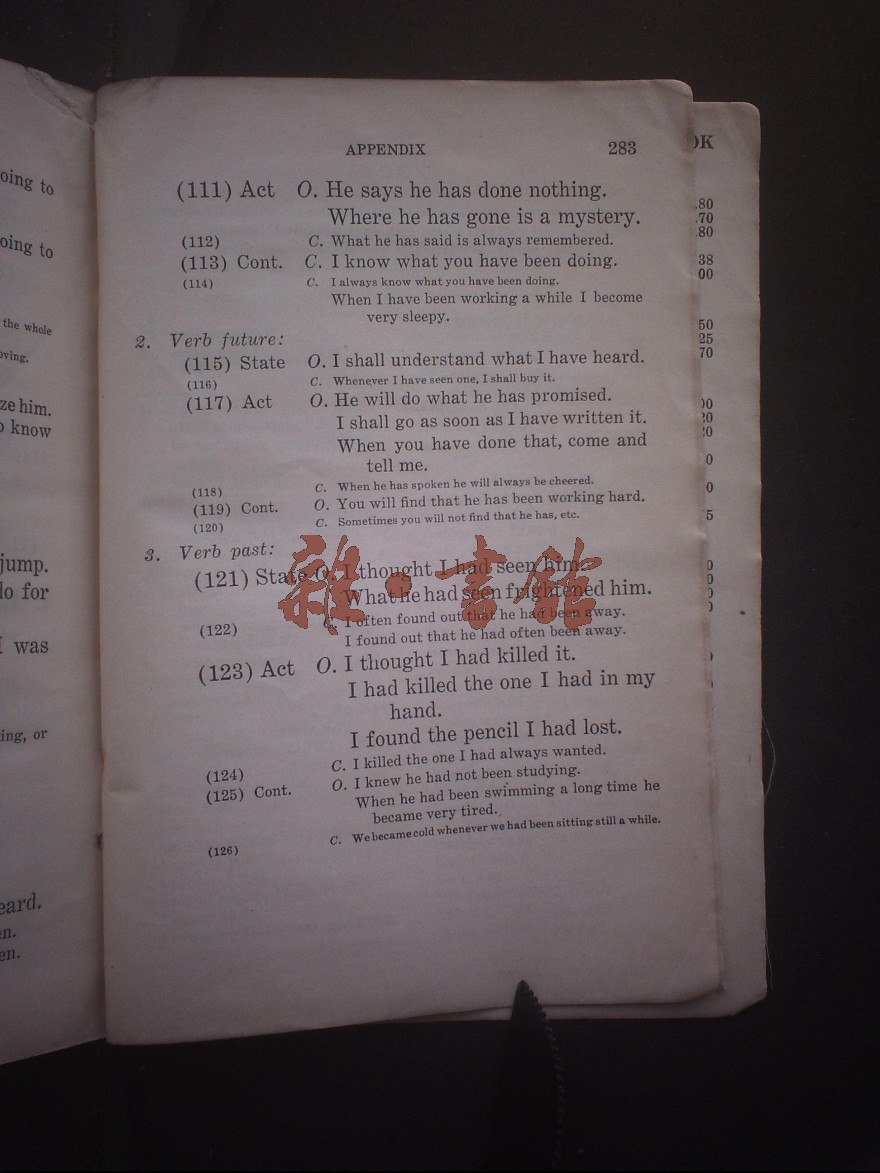 APPENDIX 283
(111) Act O. He says he has done nothing.
Where he has gone is a mystery.
(112) C. What he has said is always remembered.
(113) Cont. C. I know what you have been doing.
(114) C. I always know what you have been doing.
When I have been working a while I become
very sleepy.
2. Verb future:
(115) State O. I shall understand what I have heard.
(116) C. Whenever I have seen one, I shall buy it.
(117) Act O. He will do what he has promised.
I shall go as soon as I have written it.
When you have done that, come and
tell me.
(118) C. When he has spoken he will always be cheered.
(119) Cont. O. You will find that he has been working hard.
(120) C. Sometimes you will not find that he has, etc.
3. Verb past:
(121) State O. I thought I had seen him.
What he had seen frightened him.
(122) C. I often found out that he had been away.
I found out that he had often been away.
(123) Act O. I thought I had killed it.
I had killed the one I had in my
hand.
I found the pencil I had lost.
(124) C. I killed the one I had always wanted.
(125) Cont. O. I knew he had not been studying.
When he had been swimming a long time he
became very tired.
(126) C. We became cold whenever we had been sitting still a while.
雅·书馆
oing to
oing to
the whole
oving.
ze him.
know
jump.
lo for
I was
ing, or
eard.
en.
en.
OK
.80
.70
.80
38
00
50
25
70
00
20
20
0
0
5
0
0
0